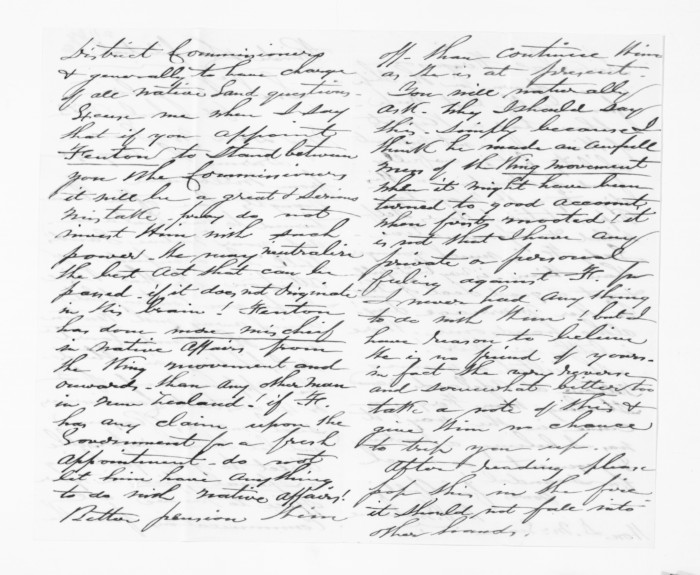 District Commissioners
& generally to have charge
of all Native Land questions.
Excuse me when I say
that if you appoint
Fenton to stand between
you & the Commissioners
it will be a great & serious
mistake. pray do not
invest Him with such
power. He may neutralize
the best Act that can be
passed. if it does not originate
in His brain! Fenton
has done more mischief
in Native Affairs from
the King movement and
onwards. than any other man
in New Zealand! if F.
has any claim upon the
Government for a fresh
appointment. do not
let him have anything
to do with Native Affairs!
Better pension Him
off. than continue Him
as He is at present.
You will naturally
ask. Why I should say
this. Simply because I
think he made an awfull
mess of the King movement
when it might have been
turned to good account,
when first mooted! it
is not that I have any
private or personal
feeling against F. for
I never had anything
to do with Him! but I
have reason to believe
He is no friend of yours.
in fact the very reverse
and somewhat bitter too
take a note of this &
give Him no chance
to trip you up.
After reading please
pop this in the fire
it should not fall into
other hands!